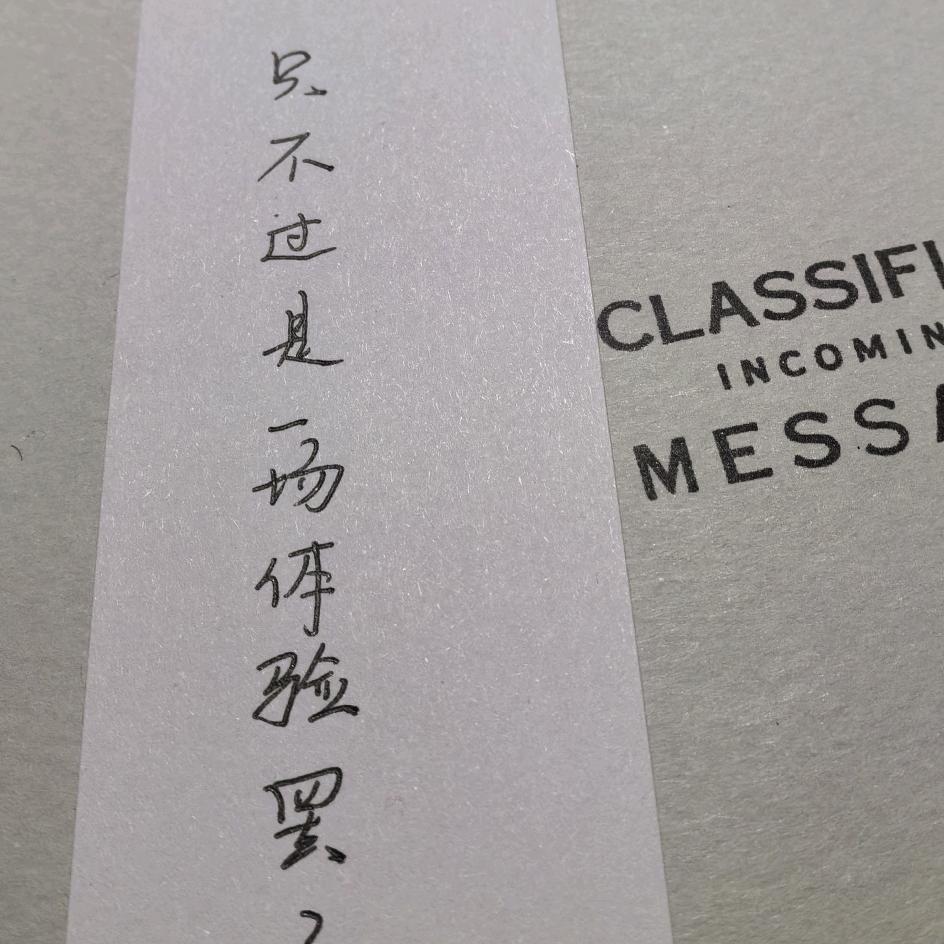 只不过是一场体验罢
CLASSIFI
INCOMIN
MESSA